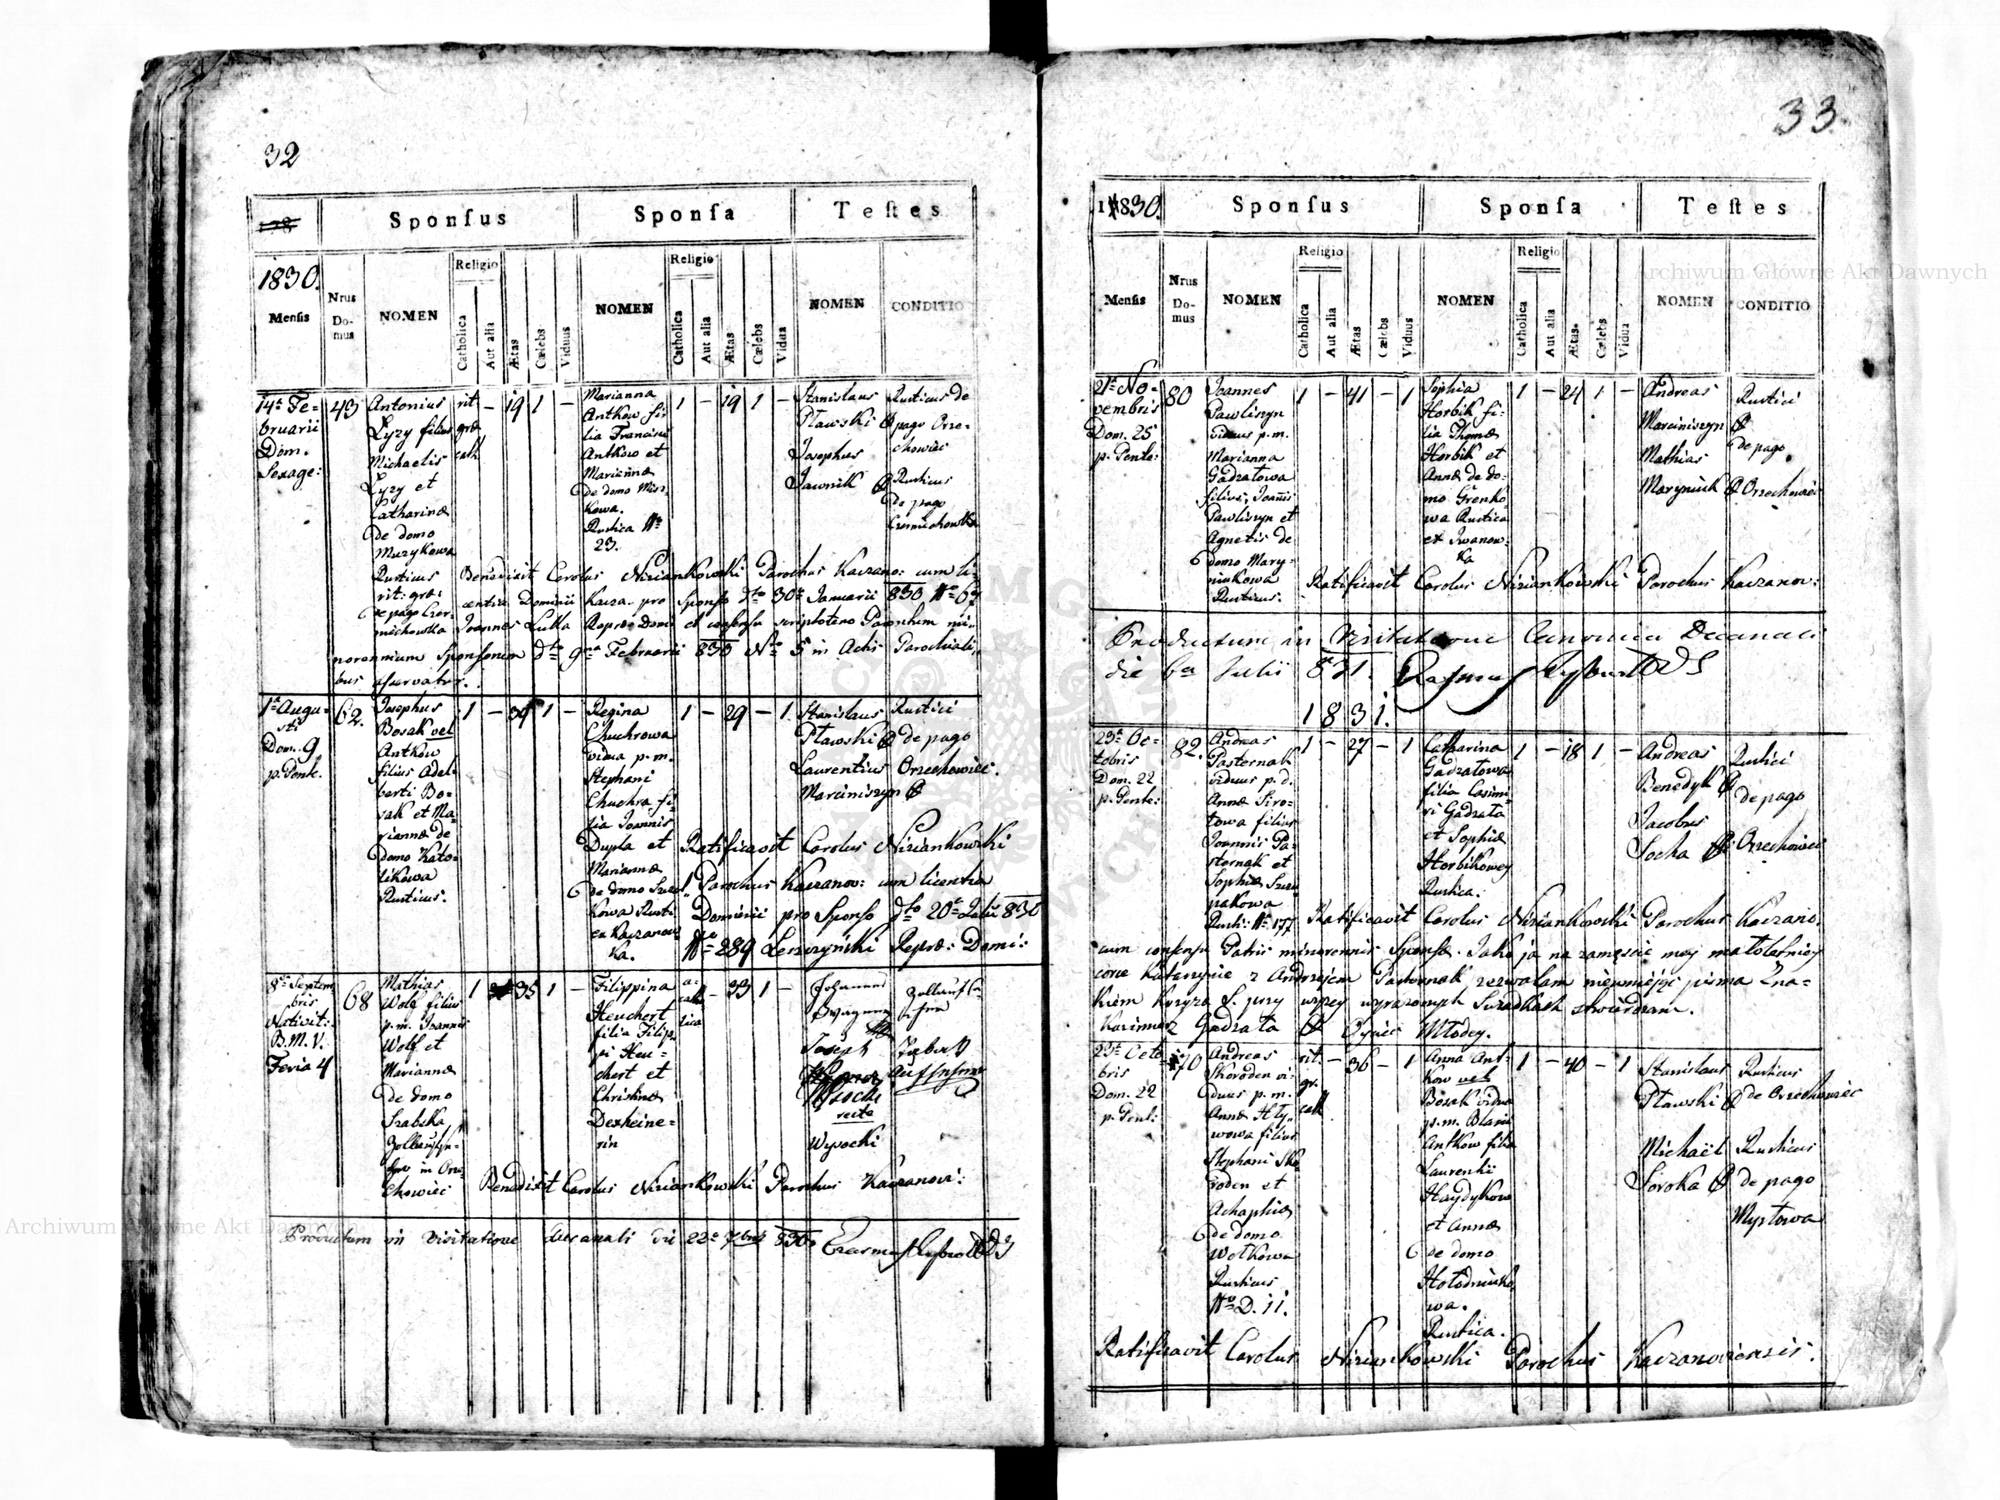 32
Sponſus Sponſa Teſtes
1830.
Menſis
Nrus Domus
NOMEN
Religio
Catholica
Aut alia
Ætas
Cælebs
Viduus
NOMEN
Religio
Catholica
Aut alia
Ætas
Cælebs
Vidua
NOMEN
CONDITIO
14a Fe-
bruarii
Dom.
Sexage:
43
Antonius
Łyzy filius
Michaelis
Łyzy et
Catharinæ
de domo
Muzykowa
Rusticus
rit: græ:
rit
græ
cath
– 19 1 –
Marianna
Antkow fi-
lia Francisci
Antkow et
Mariannæ
de domo Mis-
kowa.
Rustica No
23.
1 – 19 1 –
Stanislaus
Pławski
Josephus
Jawnik
Rusticus de
pago Orze-
chowiec
Rusticus
de pago
Benedixit Carolus Niziankowski Parochus Kaczano: cum li-
centia Dominii
pro Sponso dto 30a Januarii 830 No 67
Februarii 830 No 5 in Actis Parochiali-
bus aservatur.
1a Augu-
sti
Dom. 9
p. Pent.
62.
Josephus
Bosak vel
Antkow
filius Adal-
berti Bo-
sak et Ma-
riannæ de
domo Kato-
likowa
Rusticus.
1 – 39 1 –
Regina
Chuchrowa
vidua p. m.
Stephani
Chuchra fi-
lia Joannis
Dupla et
Mariannæ
1 – 29 – 1.
Stanislaus
Pławski
Laurentius
Marciniszyn
Rustici
de pago
Orzechowiec.
Ratificavit Carolus Niziankowski
Parochus Kaczanov: cum licentia
Dominii pro Sponso dto 20a Julii 830
No 289 Leszczynski Repræ: Domi:
8a Septem
bris
Nativit:
B. M. V.
Feria 4
68
Mathias
Wolf filius
p. m. Joannis
Wolf et
Mariannæ
de domo
Szabska
in Orze
chowiec
1 35 1 –
Filippina
Heuchert
filia Filip-
pi Heu-
chert et
Christinæ
Dexheine-
rin
– 33 1 –
Johannes
Joseph
Wysocki
recte
Wysocki
Benedixit Carolus Niziankowski Parochus Kaczanovi:
Productum in visitatione decanali die 22a 7bris 830
33
1830.
Sponſus Sponſa Teſtes
Menſis
Nrus Domus
NOMEN
Religio
Catholica
Aut alia
Ætas
Cælebs
Viduus
NOMEN
Religio
Catholica
Aut alia
Ætas
Cælebs
Vidua
NOMEN
CONDITIO
21a No-
vembris
Dom. 25
p. Pente:
80
Joannes
Pawliszyn
viduus p. m.
Marianna
Gadzatowa
filius Joannis
Pawliszyn et
Agnetis de
domo Mary-
niukowa
Rusticus.
1 – 41 – 1
Sophia
Horbik fi-
lia Thomæ
Horbik et
Annæ de do-
mo Grenko
wa Rustica
et Iwanow-
ka
1 – 24 1 –
Andreas
Marciniszyn
Mathias
Maryniuk
Rustici
de pago
Orzechowiec
Ratificavit Carolus Niziankowski Parochus Kaczanov:
Productum in Visitatione Canonica Decanali
die 6a Julii 831.
1831.
23a Oc-
tobris
Dom. 22
p. Pente:
82.
Andreas
Pasternak
viduus p. d.
Annæ Siro-
towa filius
Joannis Pa-
sternak et
Sophiæ
Rusti: No 177
1 – 27 – 1
Catharina
Gadzatowa
filia Casimi-
ri Gadzata
et Sophiæ
Horbikowey
Rustica.
1 – 18 1 –
Andreas
Benedyk
Jacobus
Socha
Rustici
de pago
Orzechowiec
Ratificavit Carolus Niziankowski Parochus Kaczano:
cum consensu Patris minorennis Sponsæ. Jako ja na zamęscie mey małoletniey
corce Katarzynie z Andrzejem Pasternak zezwalam nienniejsze pisma zna-
kiem Krzyza S. przy wyzey wyrazonych Swiadkach stwierdzam.
Kazimierz Gadzata Oyciec Młodey.
23a Octo
bris
Dom. 22
p. Pent:
70
Andreas
Skoroden vi-
duus p. m.
Annæ
filius
Stephani Sko
roden et
de domo
Wołkowa
Rusticus
No D. 11.
rit.
gr.
cath
– 36 – 1
Anna Ant-
kow vel
Bosak vidua
p. m. Blasii
Antkow filia
Laurentii
Haydykow
et Annæ
de domo
wa.
Rustica.
1 – 40 – 1
Stanislaus
Pławski
Michael
Soroka
Rusticus
de Orzechowiec
Rusticus
de pago
Mysłowa
Ratificavit Carolus Niziankowski Parochus Kaczanoviensis.
Archiwum Główne Akt Dawnych
Archiwum Główne Akt Dawnych